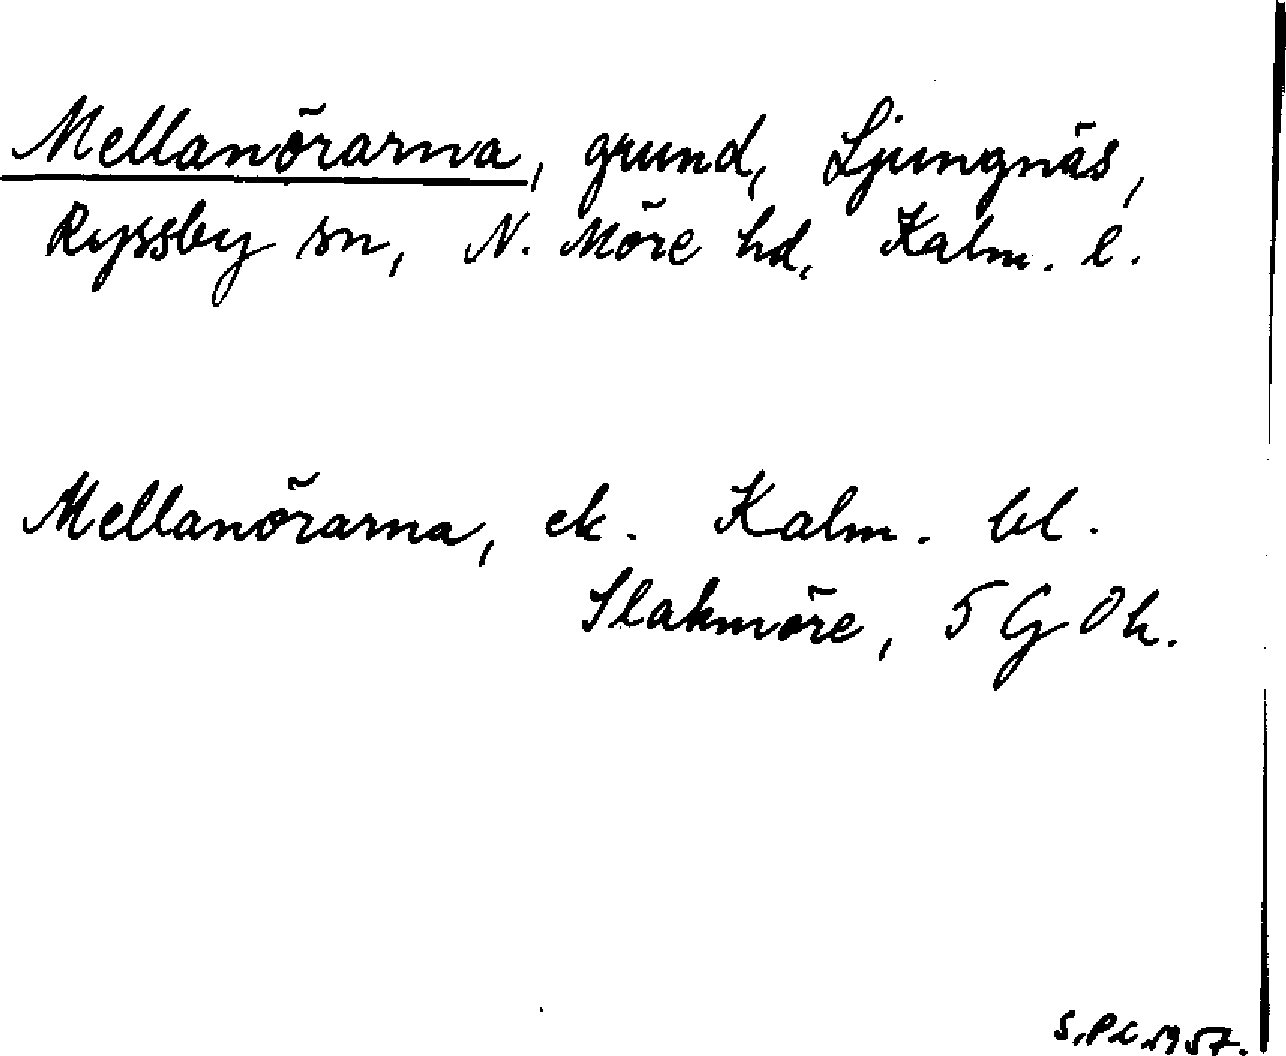 Mellanörarna, grund, Ljungnäs,
Ryssby sn, N. Möre hd, Kalm. l.
Mellanörarna, ek. Kalm. bl.
Slakmöre, 5 G Ö h.
1957.